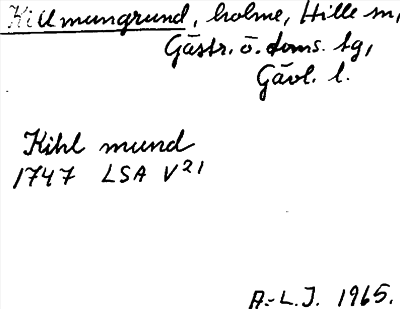 Killmungrund, holme, Hille sn,
Gästr. ö. doms. tg,
Gävl. l.
Kihl mund
1747 LSA V21
A.-L.J. 1965.